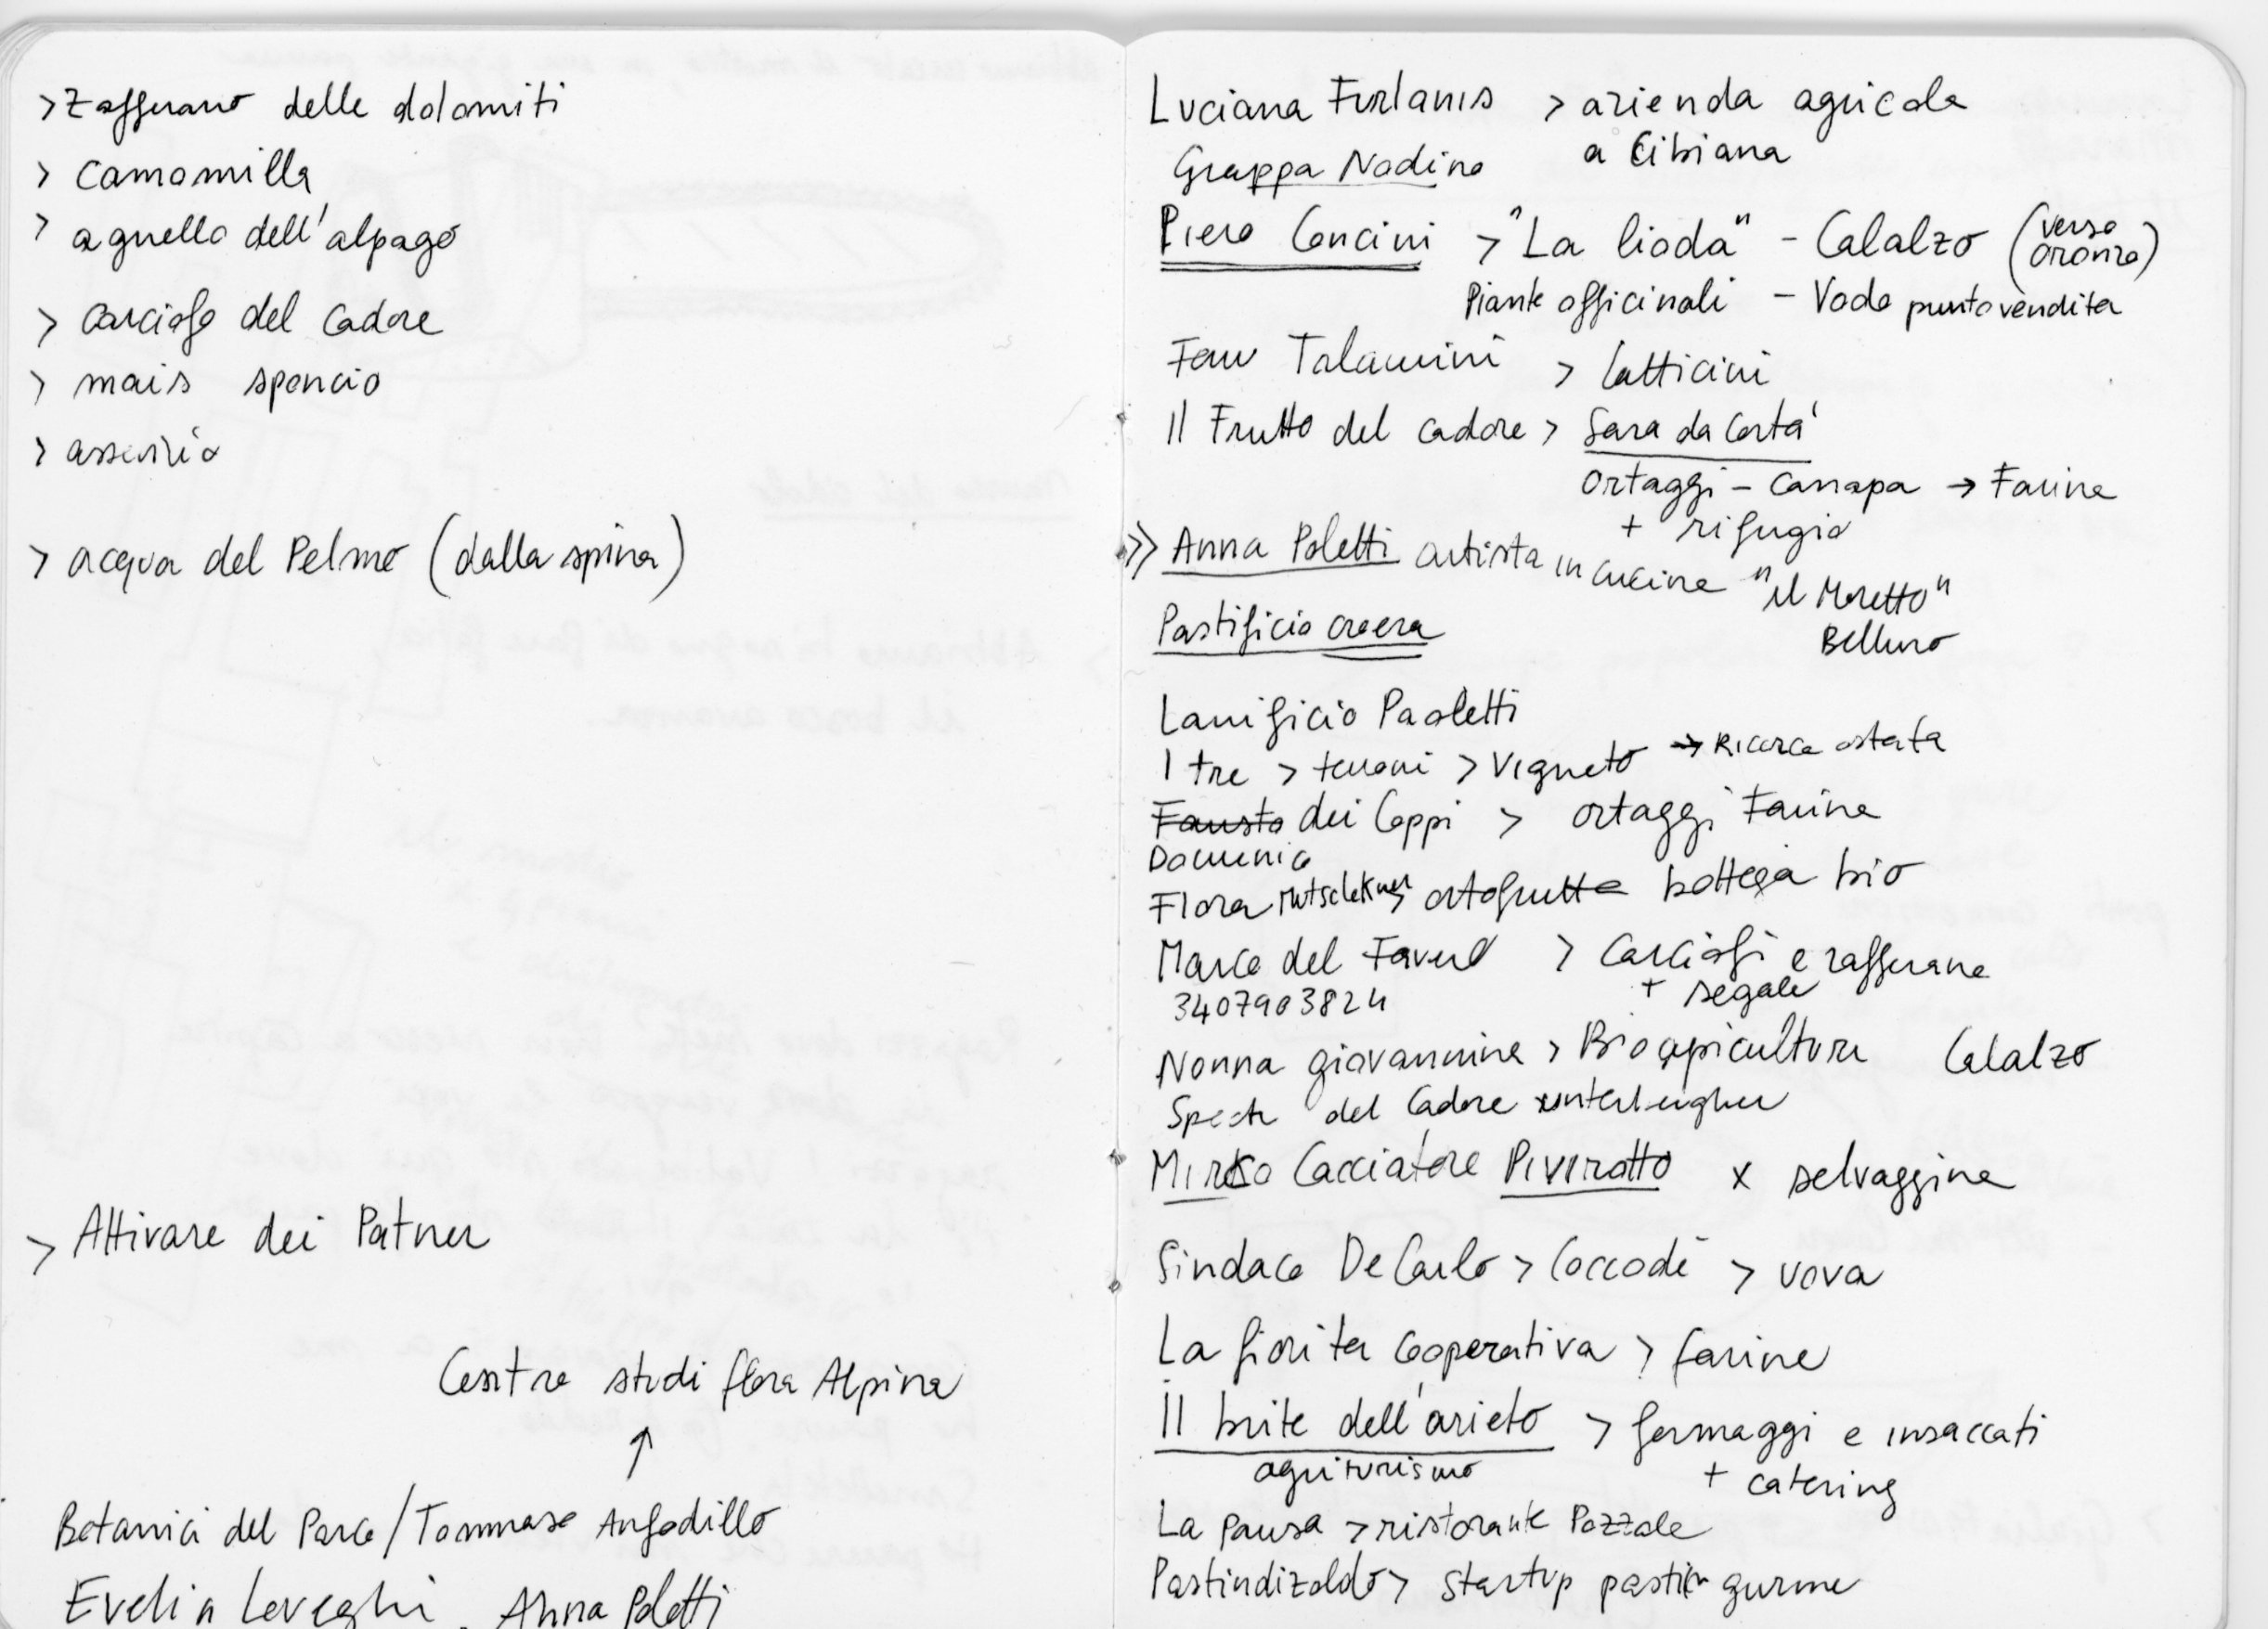 > Zafferano delle dolomiti
> camomilla
> agnello dell'alpago
> carciofo del Cadore
> mais sponcio
> acqua del Pelmo (dalla spina)
> Attivare dei Patner
Centro studi flora Alpina
↑
Botanici del Parco / Tommaso Anfodillo
Evelin Leveghi, Anna Poletti
Luciana Furlanis > azienda agricola
a Cibiana
Grappa Nadina
Piero Concini > "La lioda" - Calalzo (verso
oronzo)
Piante officinali - Vodo punto vendita
Fam Talamini > latticini
Il Frutto del cadore > Sara da Corta'
ortaggi - canapa → Farina
+ rifugio
>> Anna Poletti artista in cucina "il Moretto"
Belluno
Pastificio
Lanificio Paoletti
I tre > terreni > Vigneto → Ricerca
Fausto dei Coppi > ortaggi Farine
Domenico
Flora ortofrutta bottega bio
Marco del Favero > Carciofi e zafferano
+ segale
3407903824
Nonna giovannina > Bioapicultura Calalzo
del Cadore
Mirko Cacciatore Pivirotto x selvaggina
Sindaco De Carlo > Coccodè > uova
La fiorita cooperativa > farine
Il brite dell'arieto > formaggi e insaccati
agriturismo + catering
La Pausa > ristorante Pozzale
Pastindizoldo > startup gurme